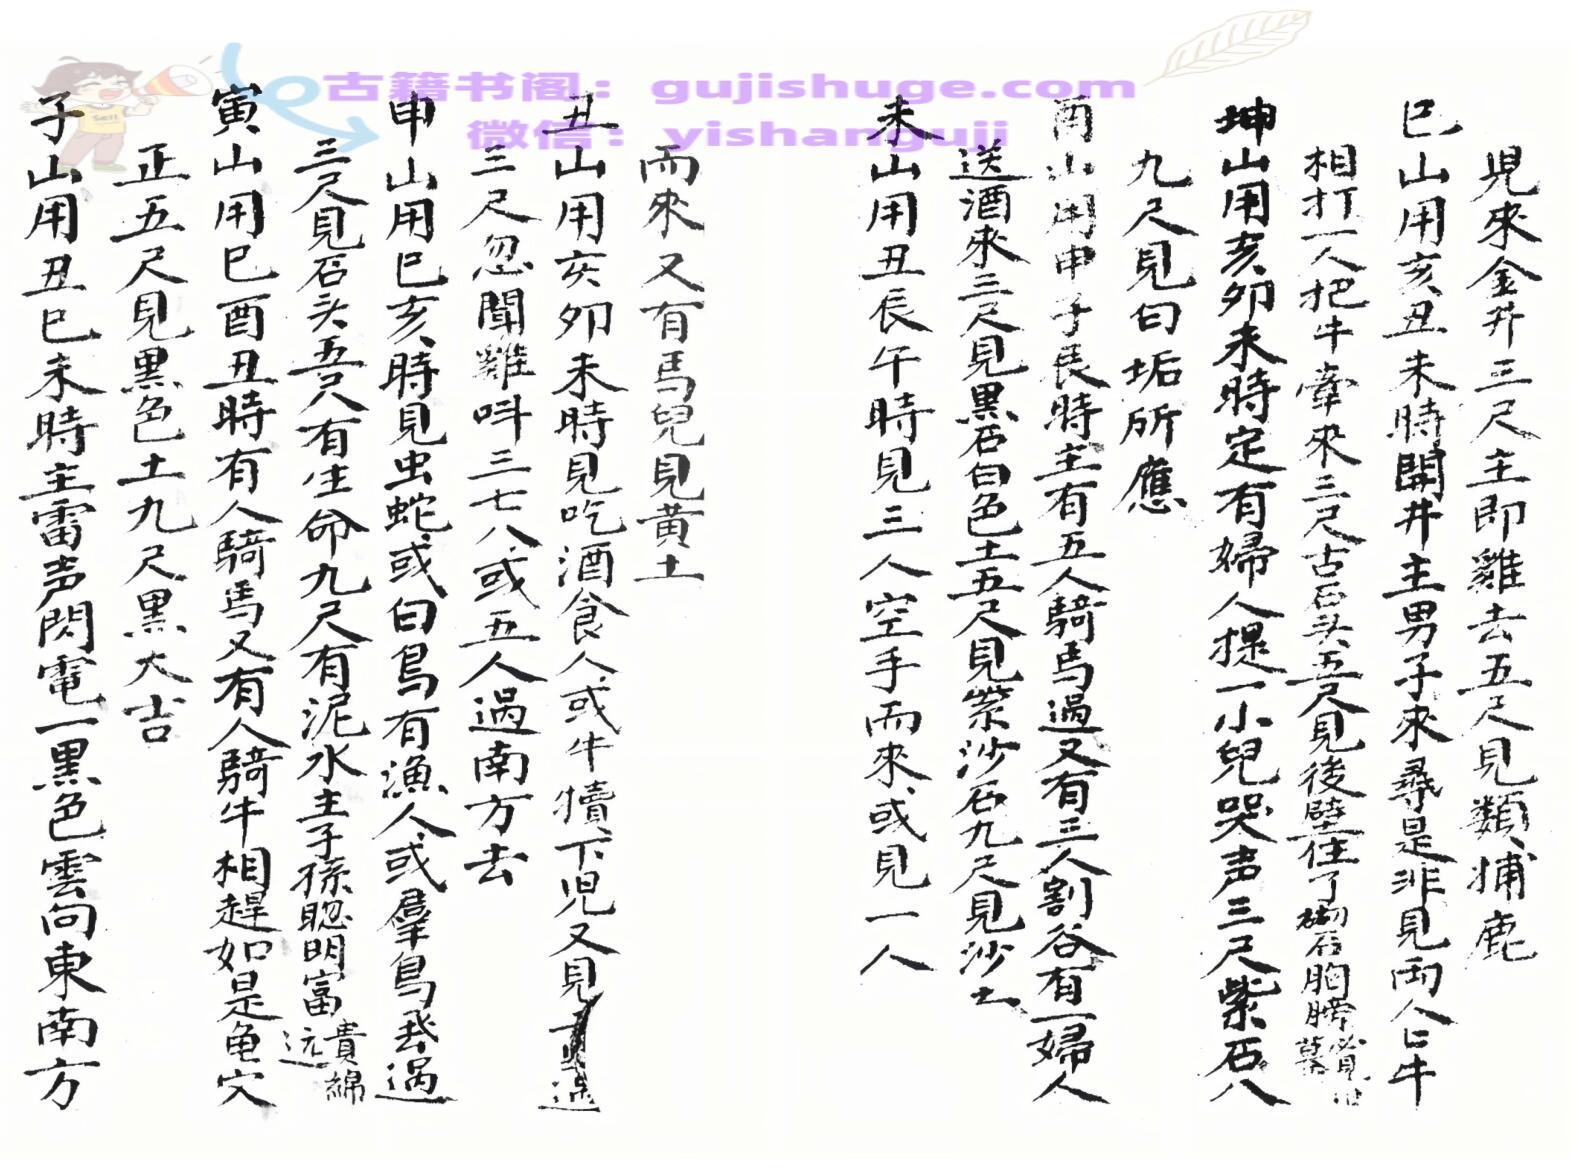 古籍书阁：gujishuge.com
微信：yishanguji
児來金井三尺主即雞去五尺見類捕鹿
巳山用亥丑未時開井主男子來尋是非見両人亡牛
相打一人把牛牽來三尺古石头五尺見後壁住了石胸膀
坤山用亥夘未時定有婦人提一小兒哭声三尺紫石八
九尺見白垢所應
酉山用申子辰時主有五人騎馬過又有三人割谷有一婦人
送酒來三尺見黒石白色土五尺見紫沙石九尺見沙土
未山用丑辰午時見三人空手而來或見一人
而來又有馬兒見黄土
丑山用亥夘未時見吃酒食人或牛犢下児又見過
三尺忽聞雞呌三七八或五人過南方去
申山用巳亥時見虫蛇或白鳥有漁人或羣鳥飛過
三尺見石头五尺有生命九尺有泥水主子孫聡明富貴綿远
寅山用巳酉丑時有人騎馬又有人騎牛相趕如是龟穴
正五尺見黒色土九尺黒大吉
子山用丑巳未時主雷声閃電一黒色雲向東南方